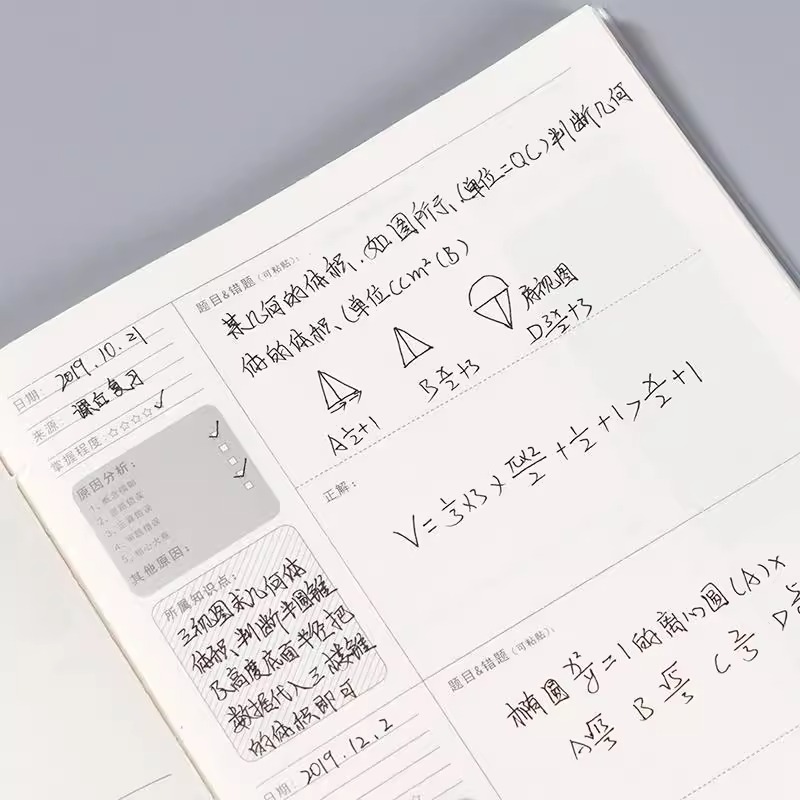 题目&错题(可粘贴):
某几何的体积.如图所示,(单位=QC)判断几何
体的体积、(单位CCm²(B)
府视图
A½+1
B π/2+3
D 3π/2+3
日期: 2019.10.21
来源: 课后复习
掌握程度:☆☆☆☆✓
原因分析:
1、概念模糊
2、思路错误
3、运算错误
4、审题错误
5、粗心大意
其他原因:
所属知识点:
三视图求几何体
体积,判断半圆锥
及高度底面半径把
数据代入三棱锥
的体积即可
正解:
V=⅓×3×π×2/2+½+1>π/2+1
题目&错题(可粘贴):
椭圆x²/y=1的离心圆(A)x
A √13/3 B √5/3 C 2/3 D
日期: 2019.12.2